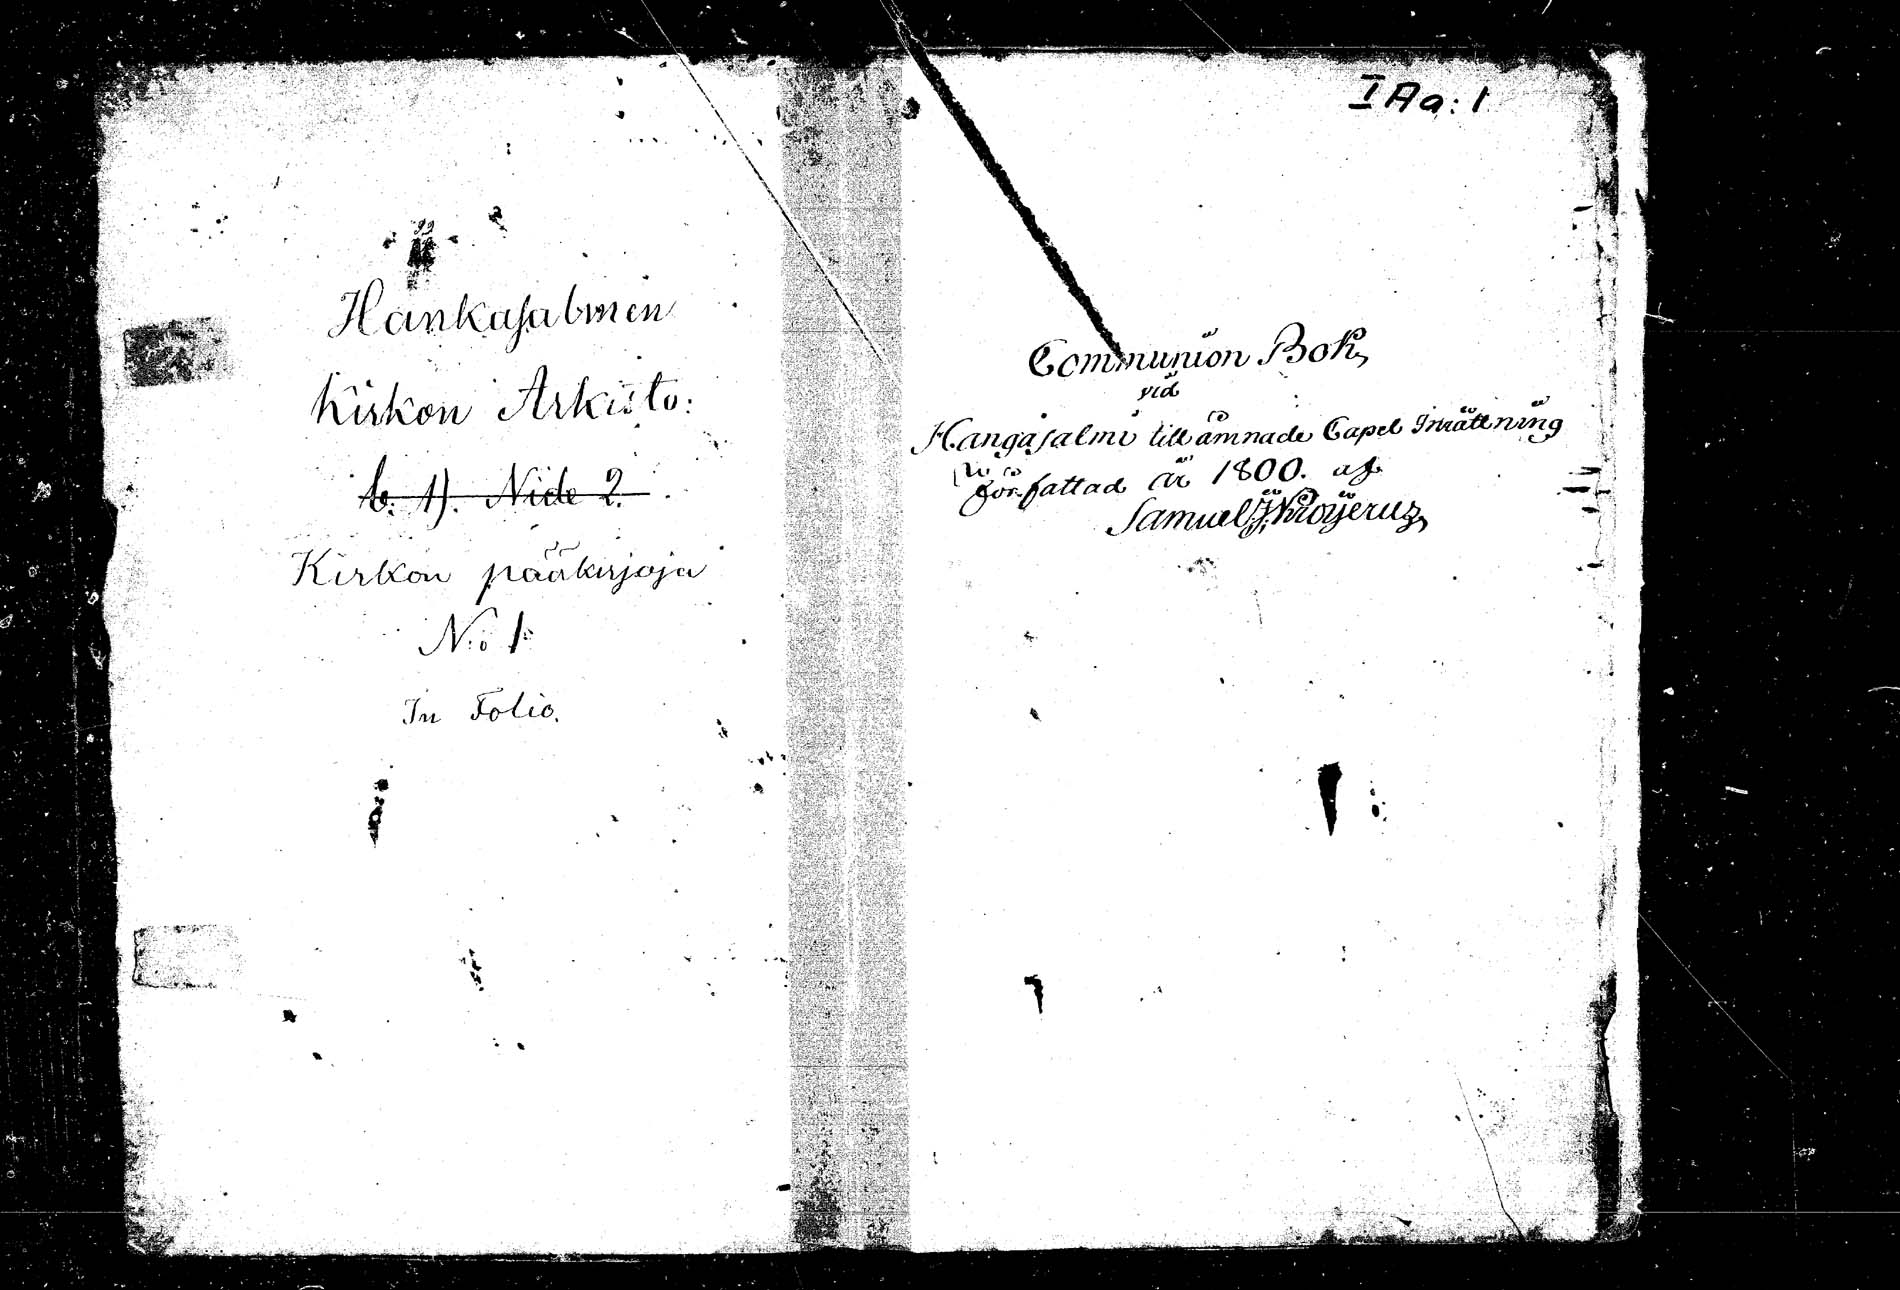 Hankasalmen
Kirkon Arkisto:
b. 1). Nide 2.
Kirkon pääkirjoja
N:o 1:
In Folio.
I Aa: 1
Communion Bok,
vid
Hangasalmi till ämnade Capel Inrättning
författad år 1800. af
Samuel J.